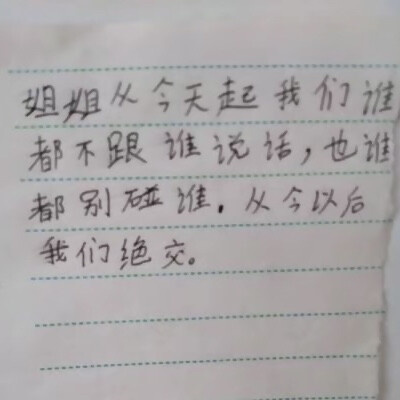 姐姐从今天起我们谁
都不跟谁说话，也谁
都别碰谁．从今以后
我们绝交。